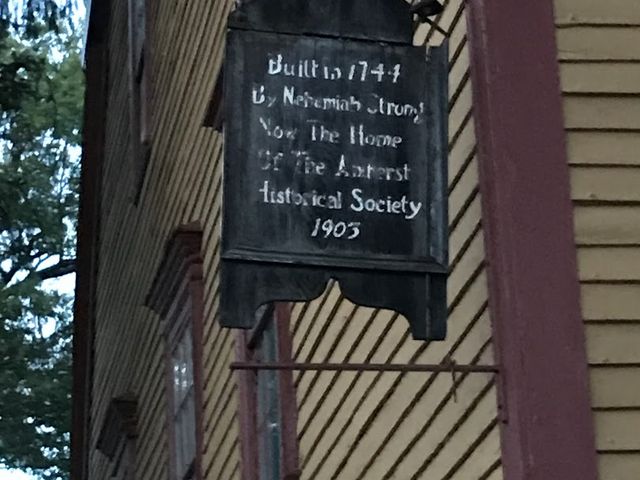 Built in 1744
By Nehemiah Strong
Now The Home
Of The Amherst
Historical Society
1903